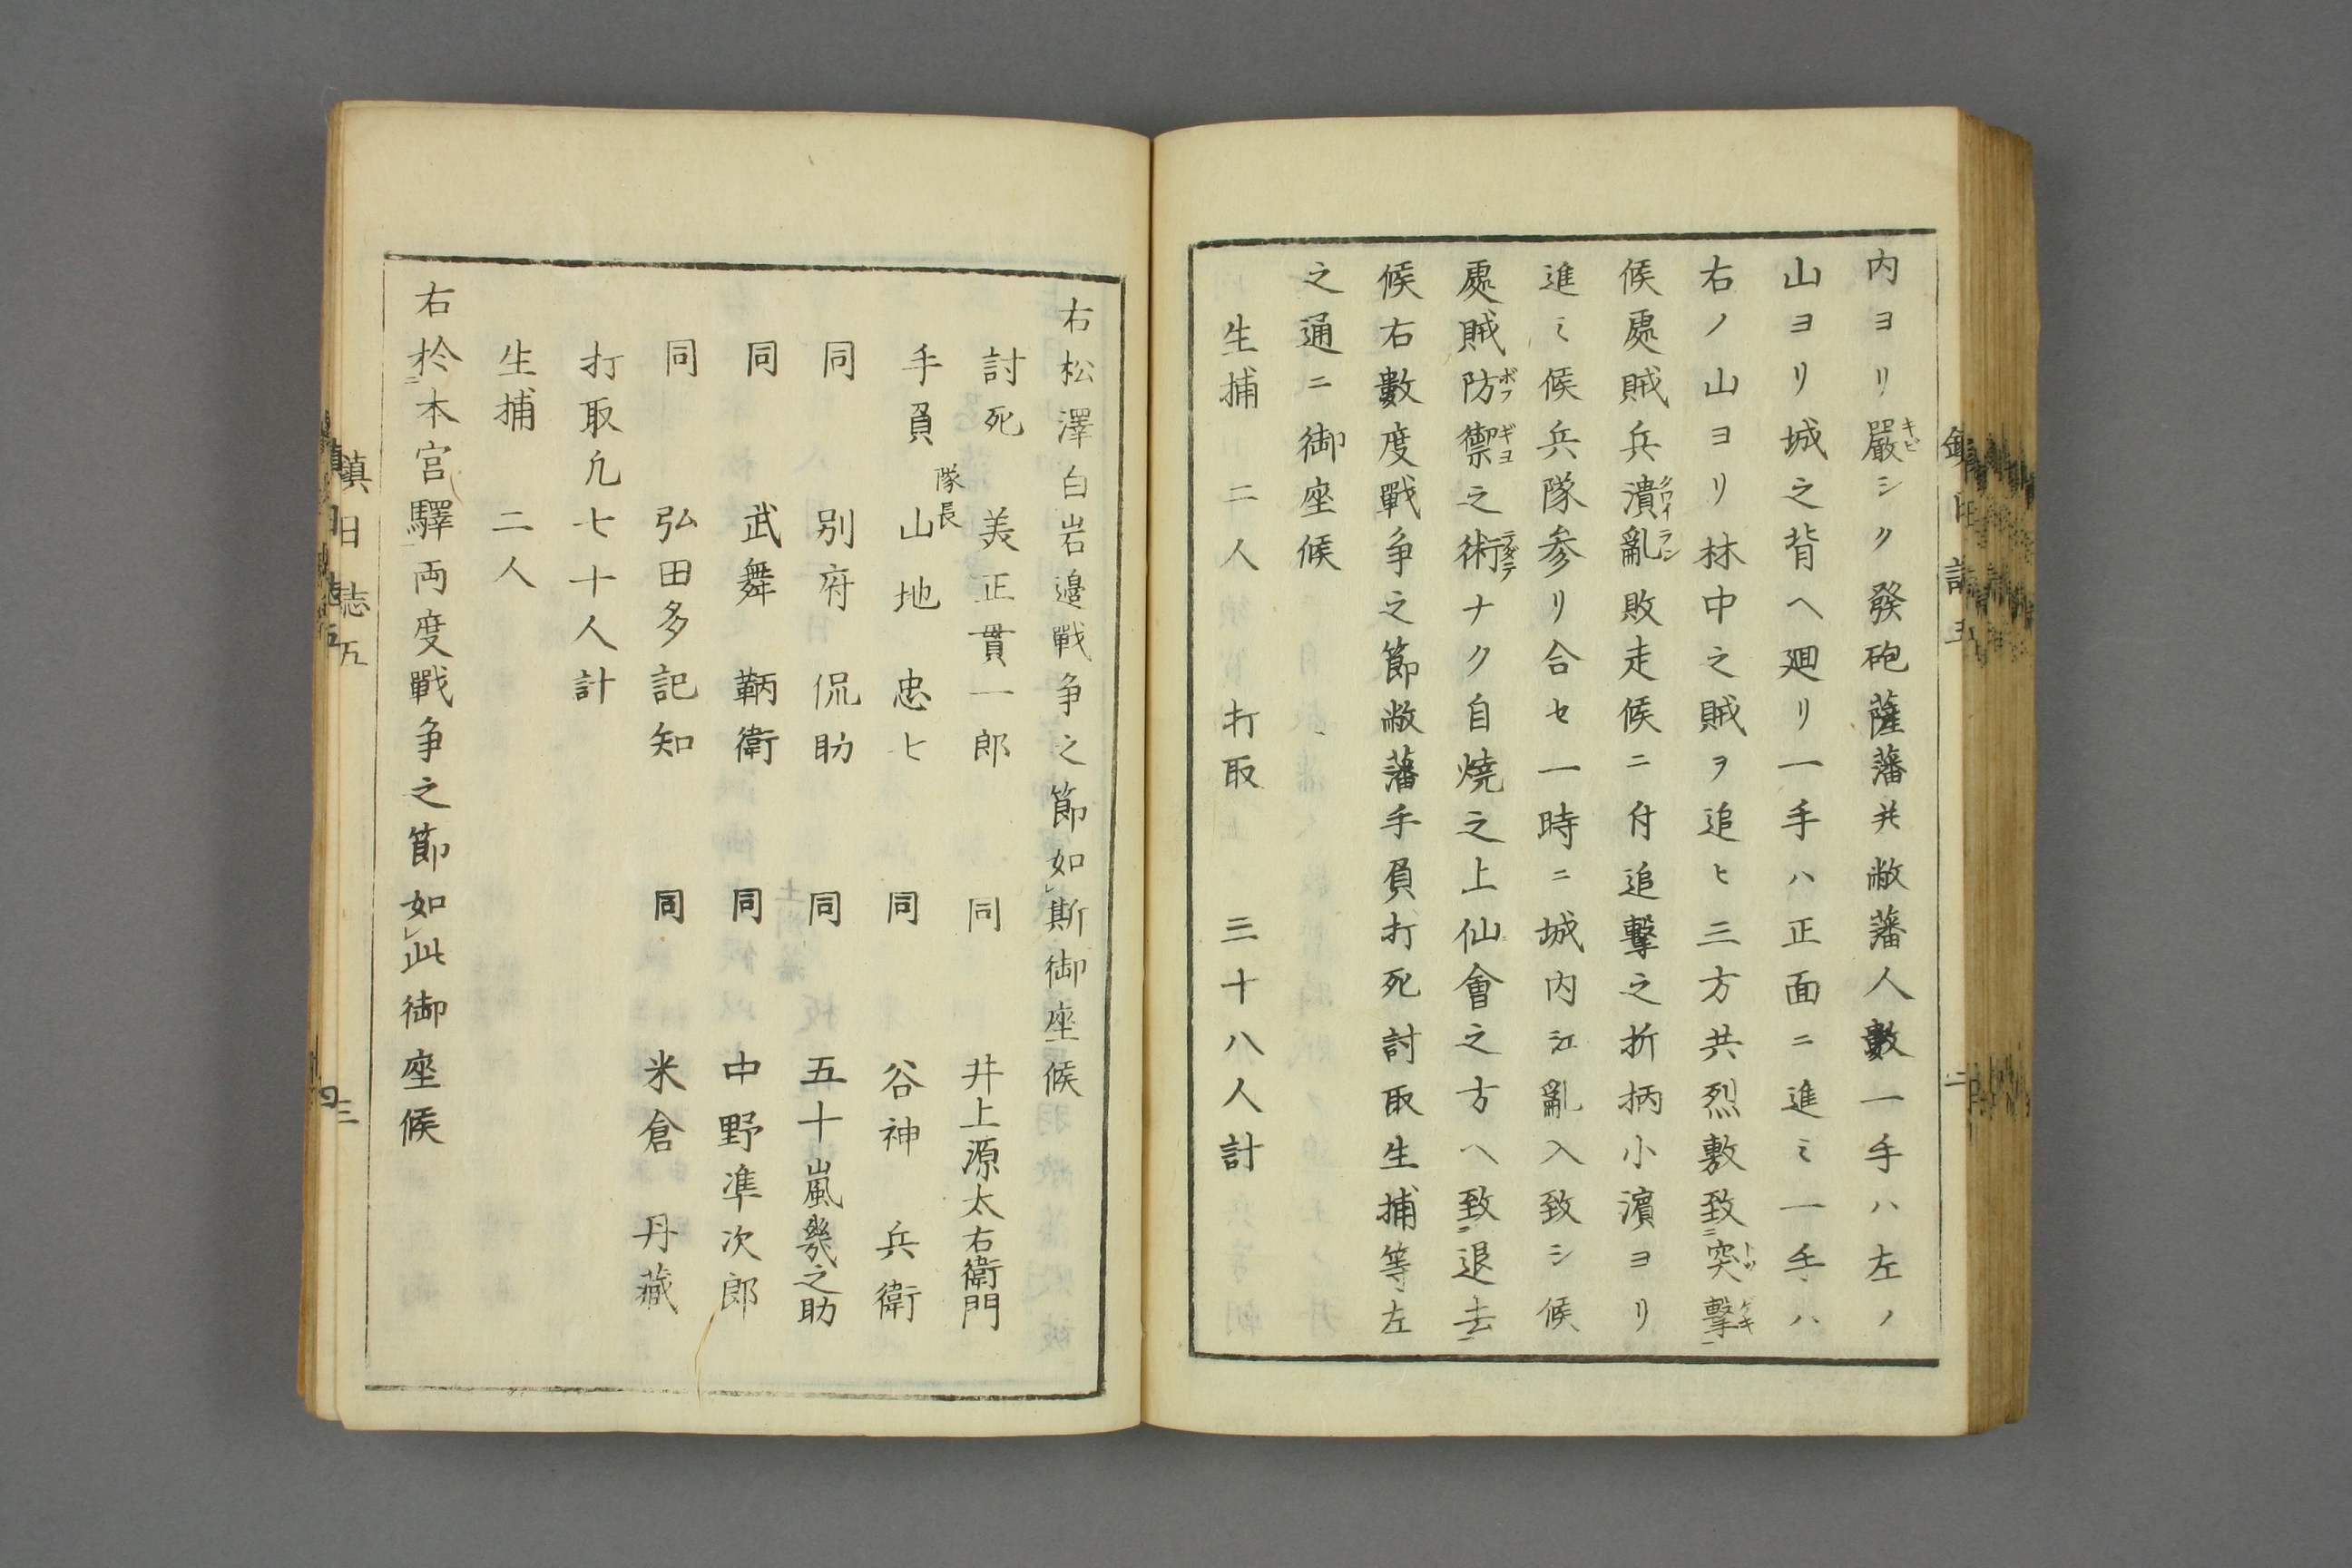 内ヨリ嚴シク發砲薩藩共敝藩人數一手ハ左ノ
山ヨリ城之背ヘ廻リ一手ハ正面ニ進ミ一手ハ
右ノ山ヨリ林中之賊ヲ追ヒ三方共烈敷致突撃
候處賊兵潰亂敗走候ニ付追撃之折柄小濵ヨリ
進ミ候兵隊参リ合セ一時ニ城内江亂入致シ候
處賊防禦之術ナク自焼之上仙會之方ヘ致退去
候右數度戰争之節敝藩手負打死討取生捕等左
之通ニ御座候
生捕 二人 打取 三十八人計
右松澤白岩邉戰争之節如斯御座候
討死 美正貫一郎 同 井上源太右衛門
手負 隊長 山地忠七 同 谷神兵衛
同 別府侃助 同 五十嵐幾之助
同 武舞鞆衛 同 中野準次郎
同 弘田多記知 同 米倉丹藏
打取凢七十人計
生捕 二人
右於本宮驛両度戰争之節如此御座候
鎮日志五
三